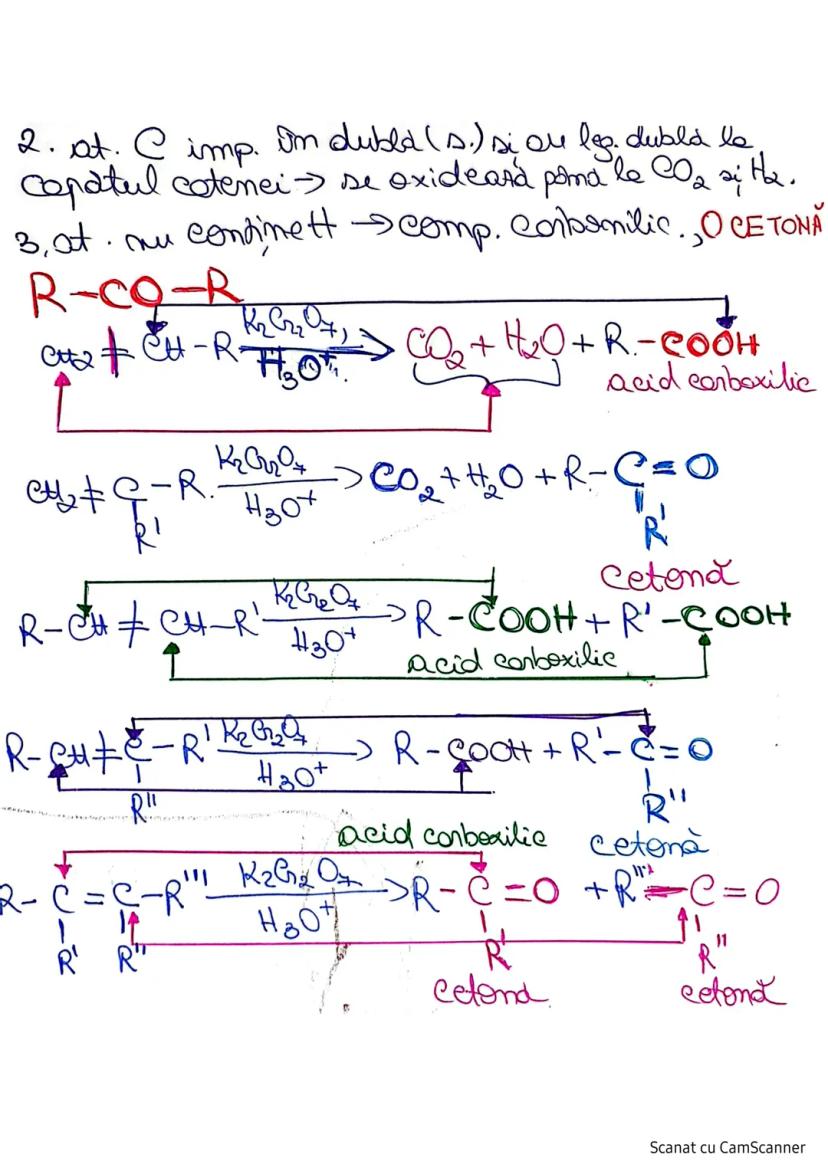 2. at. C imp. în dublă (s.) și au leg. dublă la
capătul catenei → se oxidează până la CO2 și H2.
3. at. nu conține H → comp. carbonilic., O CETONĂ
R-CO-R
CH2 ≠ CH - R K2Cr2O7, H3O+. → CO2 + H2O + R.-COOH
acid carboxilic
CH2 ≠ C - R. K2Cr2O7 H3O+ → CO2 + H2O + R-C=O
R' R'
cetonă
R-CH ≠ CH-R' K2Cr2O7 H3O+ → R-COOH + R'-COOH
acid carboxilic
R-CH ≠ C-R' K2Cr2O7 H3O+ → R-COOH + R'-C=O
R" R"
acid carboxilic cetonă
R-C=C-R''' K2Cr2O7 H3O+ → R-C=O + R'''-C=O
R' R" R' R"
cetonă cetonă
Scanat cu CamScanner